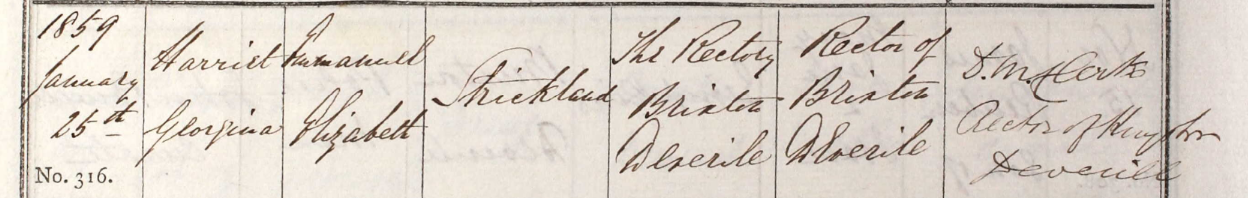 1859
January
25th
No. 316.
Harriet
Georgina
Emmanuell
Elizabeth
Strickland
The Rectory
Brixton
Deverile
Rector of
Brixton
Deverile
D. M. Clerk
Rector of Kingston
Deverill